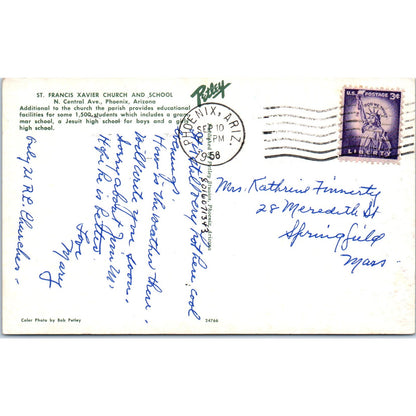 ST. FRANCIS XAVIER CHURCH AND SCHOOL
N. Central Ave., Phoenix, Arizona
Additional to the church the parish provides educational
facilities for some 1,500 students which includes a gram-
mar school, a Jesuit high school for boys and a girls
high school.
Petley
PHOENIX, ARIZ.
SEP 10
PM
1958
U.S. POSTAGE 3¢
LIBERTY
Still very Hot here, cool
evenings.
How is the weather there.
Will write you soon.
Sorry about your
Hope he is better.
Love
Mary
Only 21 R.C. Churches.
Mrs. Kathrine Finnerty
28 Meredeth St
Springfield
Mass.
Color Photo by Bob Petley
24766